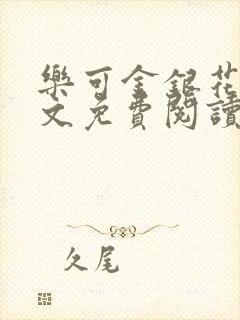 樂可金銀花
文免費閱讀
久尾